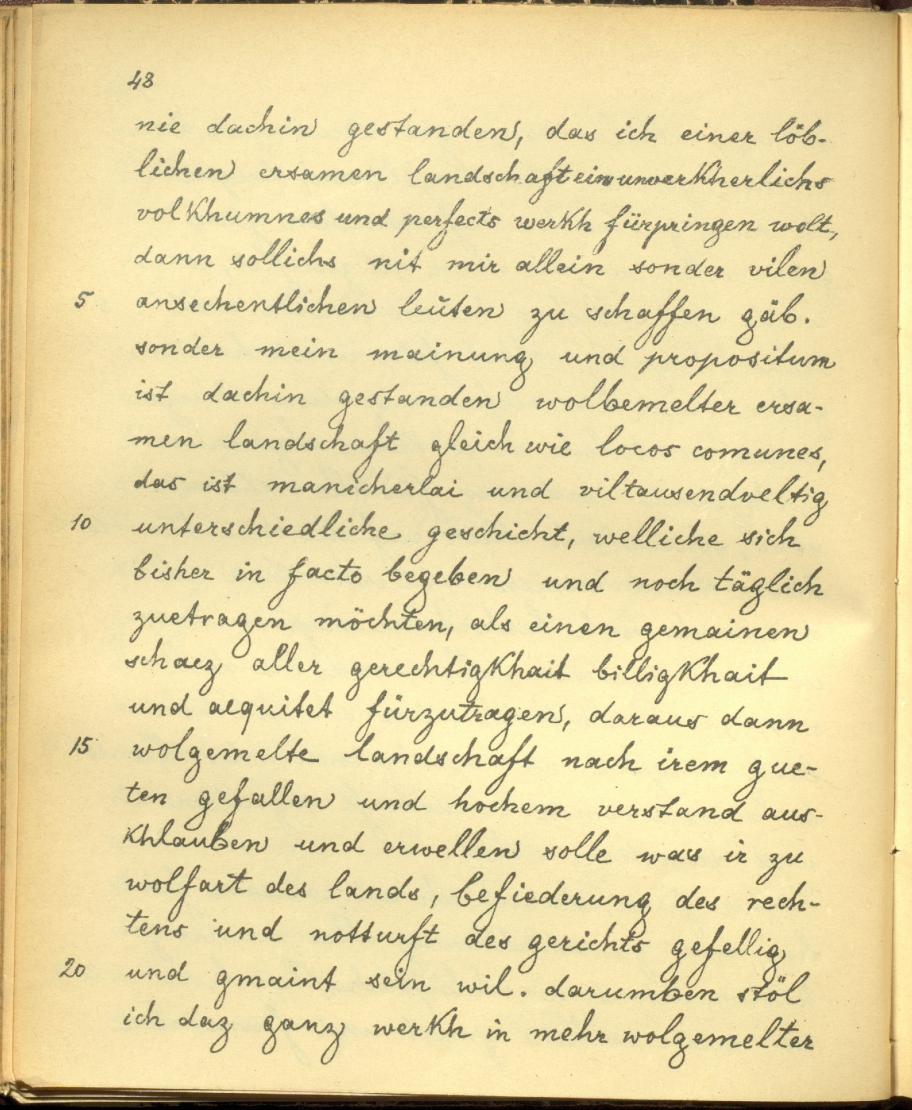 48
nie dachin gestanden, das ich einer löb-
lichen ersamen landschaft ein unverkherlichs
volkhumnes und perfects werkh fürpringen wolt,
dann sollichs nit mir allein sonder vilen
5 ansechentlichen leüten zu schaffen gäb.
sonder mein mainung und propositum
ist dachin gestanden wolbemelter ersa-
men landschaft gleich wie locos comunes,
das ist manicherlai und viltausendveltig
10 unterschiedliche geschicht, welliche sich
bisher in facto begeben und noch täglich
zuetragen möchten, als einen gemainen
schacz aller gerechtigkhait billigkhait
und aequitet fürzutragen, daraus dann
15 wolgemelte landschaft nach irem gue-
ten gefallen und hochem verstand aus-
khlauben und erwellen solle was ir zu
wolfart des lands, befiederung des rech-
tens und notturft des gerichts gefellig
20 und gmaint sein wil. darumben stöl
ich daz ganz werkh in mehr wolgemelter